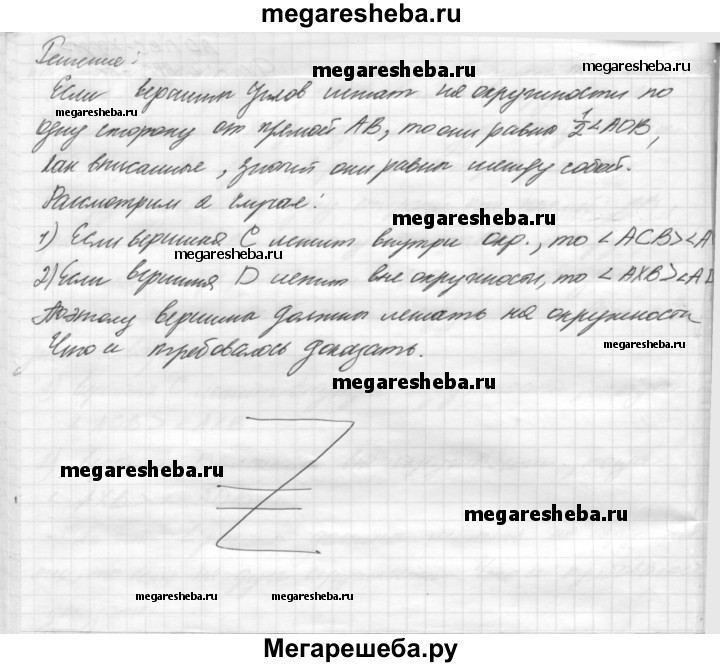 megaresheba.ru
Решение:
megaresheba.ru
megaresheba.ru
Если вершины углов лежат на окружности по
megaresheba.ru
одну сторону от прямой AB, то они равны 1/2 ∠AOB,
как вписанные, значит они равны между собой.
Рассмотрим 2 случая:
megaresheba.ru
1) Если вершина C лежит внутри окр., то ∠ACB>∠A
megaresheba.ru
2) Если вершина D лежит вне окружности, то ∠AXB>∠A
Поэтому вершины должны лежать на окружности
megaresheba.ru
Что и требовалось доказать.
megaresheba.ru
megaresheba.ru
megaresheba.ru
megaresheba.ru
megaresheba.ru
Мегарешеба.ру